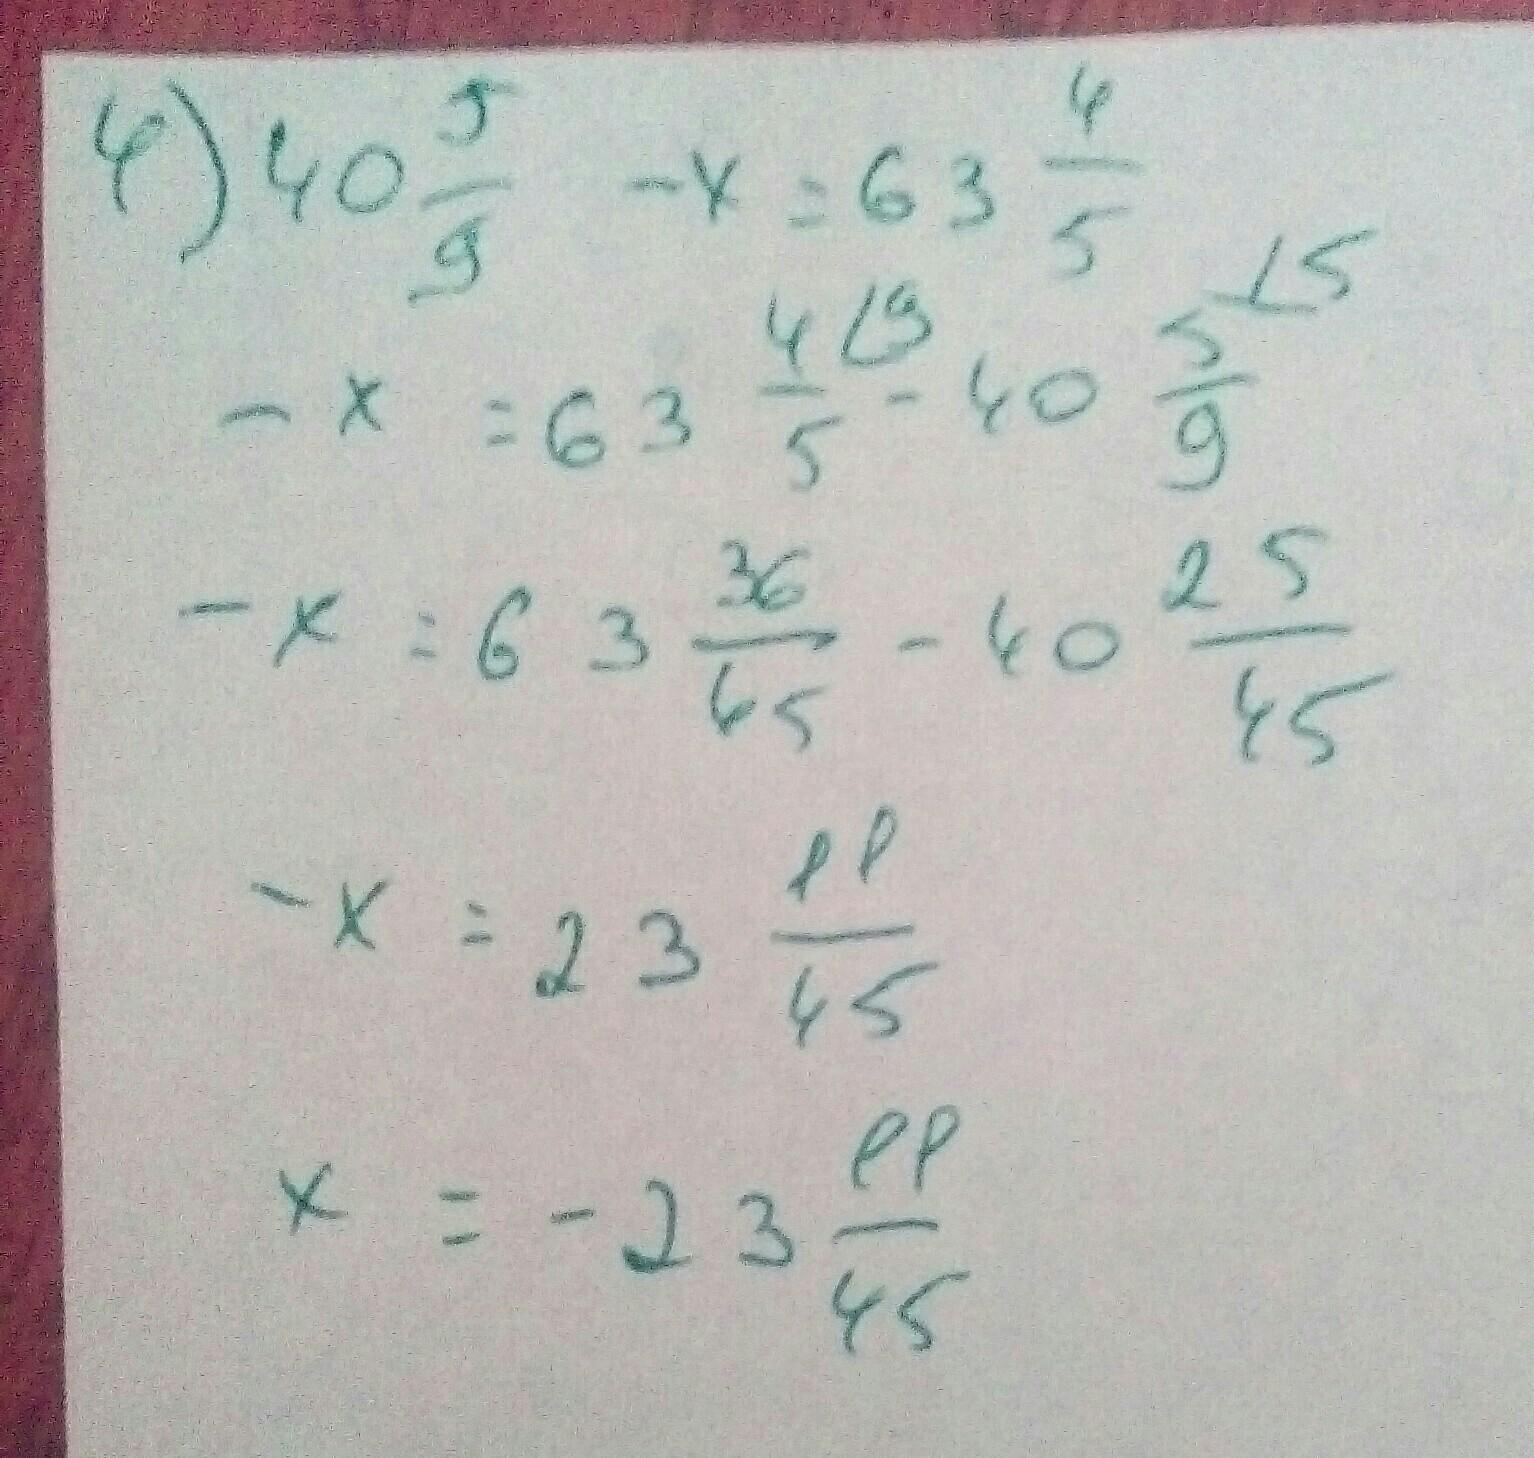 4) 40 5/9 - x = 63 4/5
- x = 63 4/5 (9 - 40 5/9 (5
- x = 63 36/45 - 40 25/45
- x = 23 11/45
x = - 23 11/45